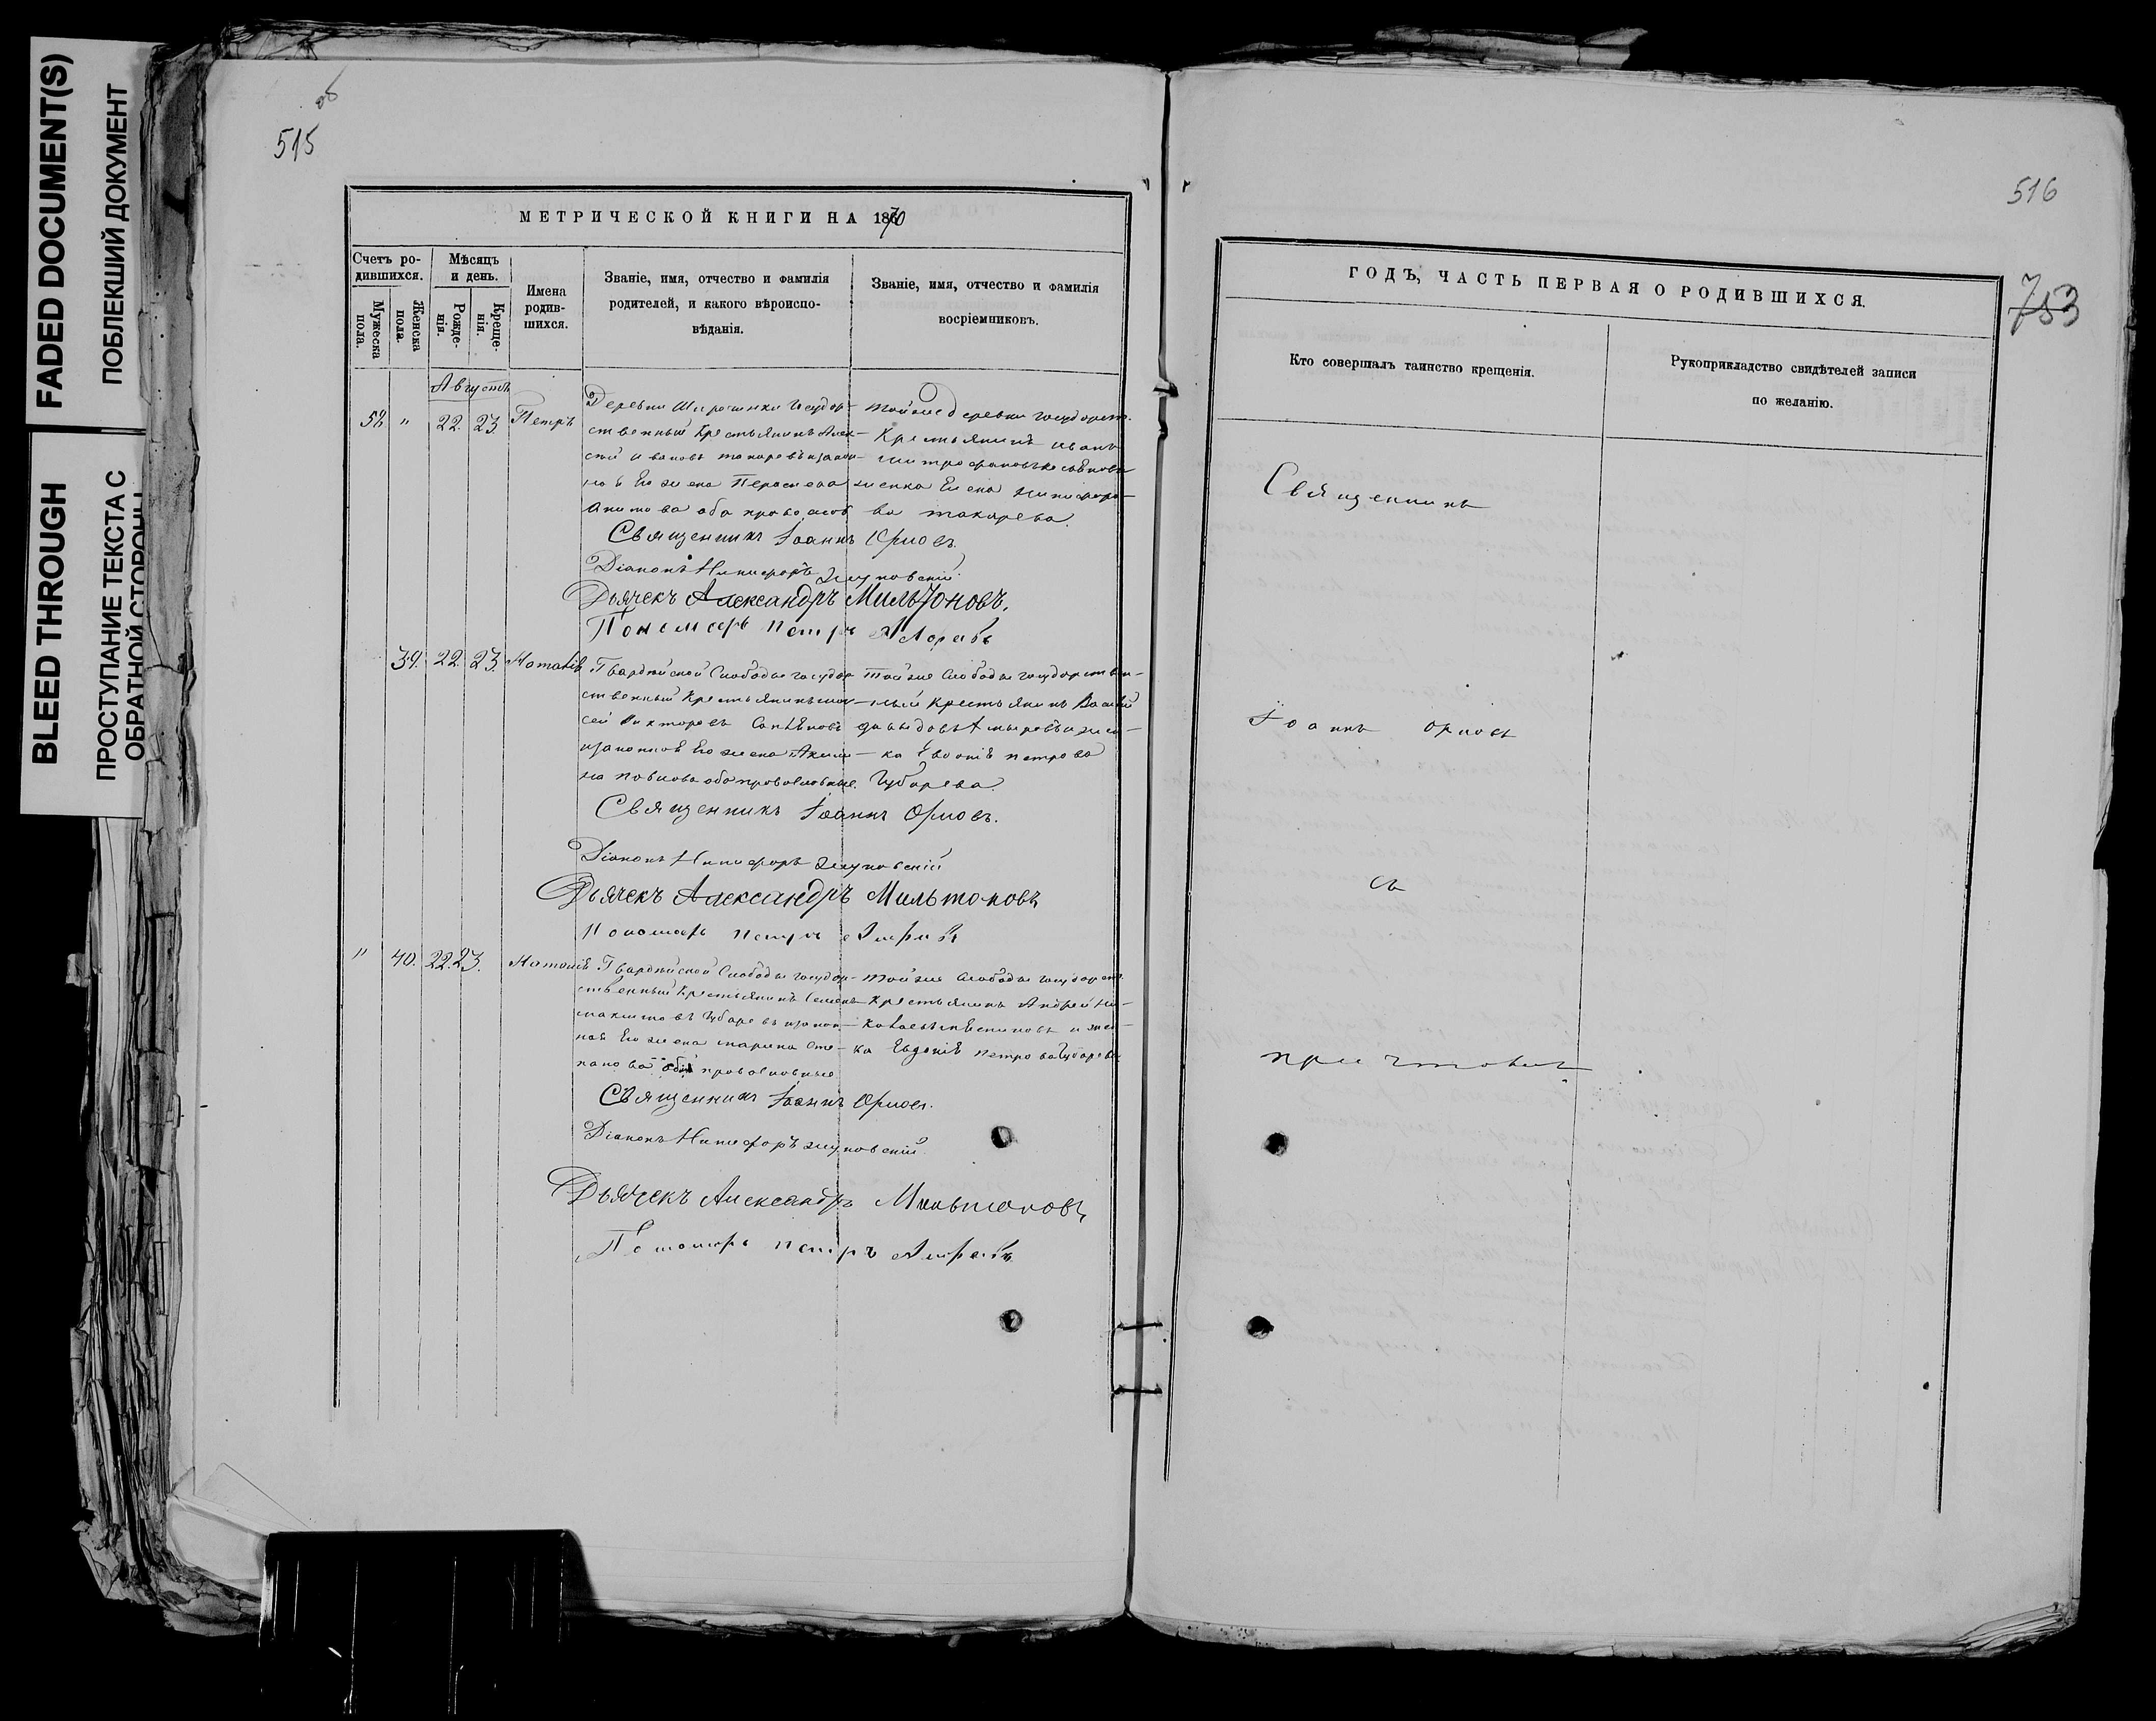 FADED DOCUMENT(S)
ПОБЛЕКШИЙ ДОКУМЕНТ
BLEED THROUGH
ПРОСТУПАНИЕ ТЕКСТА С
ОБРАТНОЙ СТОРОНЫ
об
515
МЕТРИЧЕСКОЙ КНИГИ НА 1870
Счетъ ро-
дившихся.
Мужеска
пола.
Женска
пола.
Мѣсяцъ
и день.
Рожде-
нія.
Креще-
нія.
Имена
родив-
шихся.
Званіе, имя, отчество и фамилія
родителей, и какого вѣроиспо-
вѣданія.
Званіе, имя, отчество и фамилія
воспріемниковъ.
Августъ
58 " 22. 23. Петръ
Деревни государ-
ственный крестьянинъ Алек-
сѣй Ивановъ Токаревъ и закон-
ная Его жена
оба правослов
Той же деревни государст.
Крестьянинъ Иванъ
Митрофановъ
женка Елена Никифоро-
ва Токарева.
Священникъ Іоаннъ Орловъ.
Діаконъ Никифоръ Жуковскій.
Дьячекъ Александръ Мильтоновъ.
Пономарь Петръ
39. 22. 23. Наталія
Гвардѣйской Слободы государ-
ственный Крестьянинъ
сей Викторовъ
и законноя Его жена Акили-
на Павлова оба православные.
Той же Слободы государствен-
ный Крестьянинъ Василій
Давыдовъ
ка Евдокія Петрова
Чубарева.
Священникъ Іоаннъ Орловъ.
Діаконъ Никифоръ Жуковскій
Дьячекъ Александръ Мильтоновъ
Пономарь Петръ
" 40. 22. 23. Наталія
Гвардѣйской Слободы государ-
ственный Крестьянинъ Семенъ
Максимовъ Чубаревъ и закон-
ная Его жена Марина Сте-
панова оба православные
Той же Слободы государст.
Крестьянинъ Андрей Ни-
и жен-
ка Евдокія Петрова Чубарева
Священникъ Іоаннъ Орловъ.
Діаконъ Никифоръ Жуковскій.
Дьячекъ Александръ Мильтоновъ
Пономарь Петръ
516
753
ГОДЪ, ЧАСТЬ ПЕРВАЯ О РОДИВШИХСЯ.
Кто совершалъ таинство крещенія.
Рукоприкладство свидѣтелей записи
по желанію.
Священникъ
Іоаннъ Орловъ
съ
причтомъ